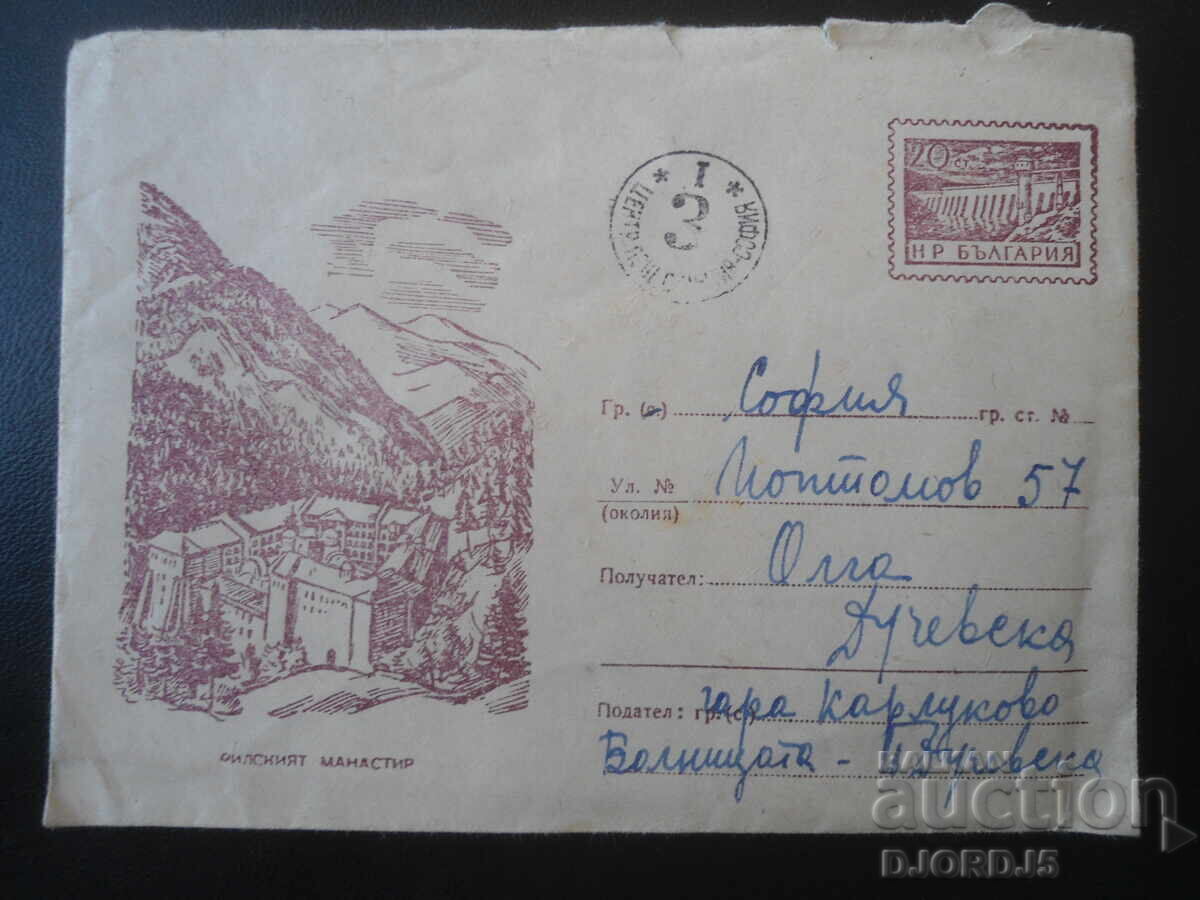 20 СТ.
НР БЪЛГАРИЯ
* I *
3
ЦЕНТР. СОФИЯ
Гр. (с.) София гр. ст. №
Ул. № Йоптомов 57
(околия)
Получател: Олга
Дучевска
Подател: гр. (с.) гара Карлуково
Болницата - Дучевска
РИЛСКИЯТ МАНАСТИР
BALKAN
auction
DJORDJ5